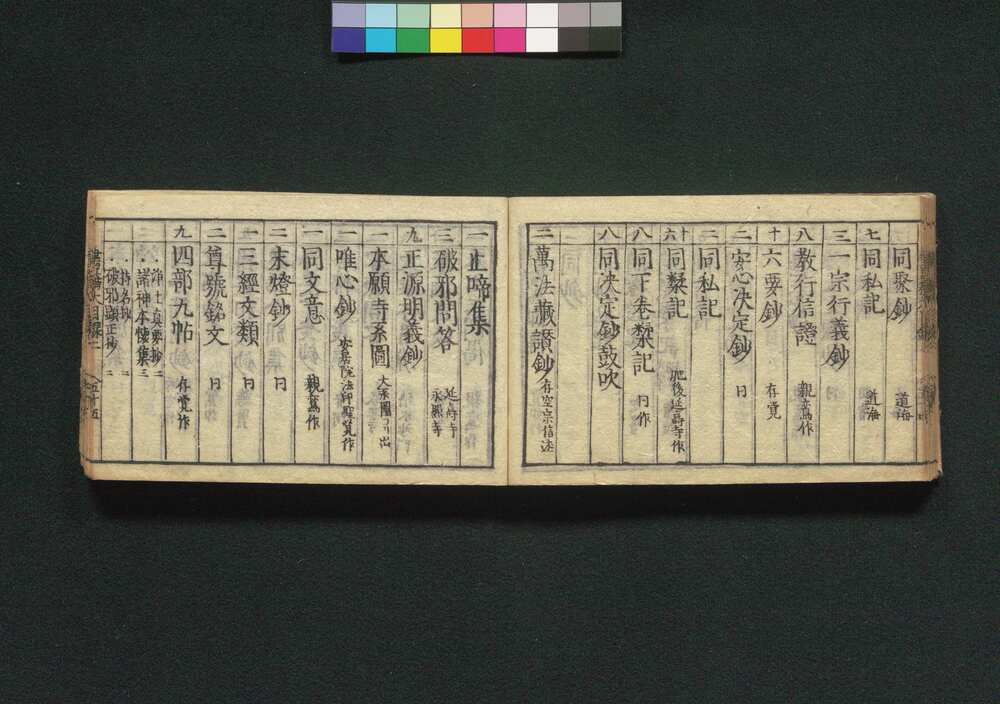 同聚鈔 道海
七 同私記 道海
三 一宗行義鈔
八 教行信證 親鸞作
十 六要鈔 存覚
二 安心决定鈔 同
二 同私記
六十 同槩記 肥後延壽寺作
八 同下巻槩記 同作
八 同决定鈔鼓吹
二 萬法藏讃鈔 存空宗信述
一 正啼集
三 破邪問答 延壽寺 永願寺
九 正源明義鈔
一 本願寺系圖 大系圖ヨリ出
一 唯心鈔 安居院法印聖覚作
一 同文意 親鸞作
二 末燈鈔 同
一 三經文類 同
二 尊號銘文 同
九 四部九帖 存覚作
浄土真要抄 二
諸神本懷集 二
持名抄 二
破邪顕正抄 二
五十五